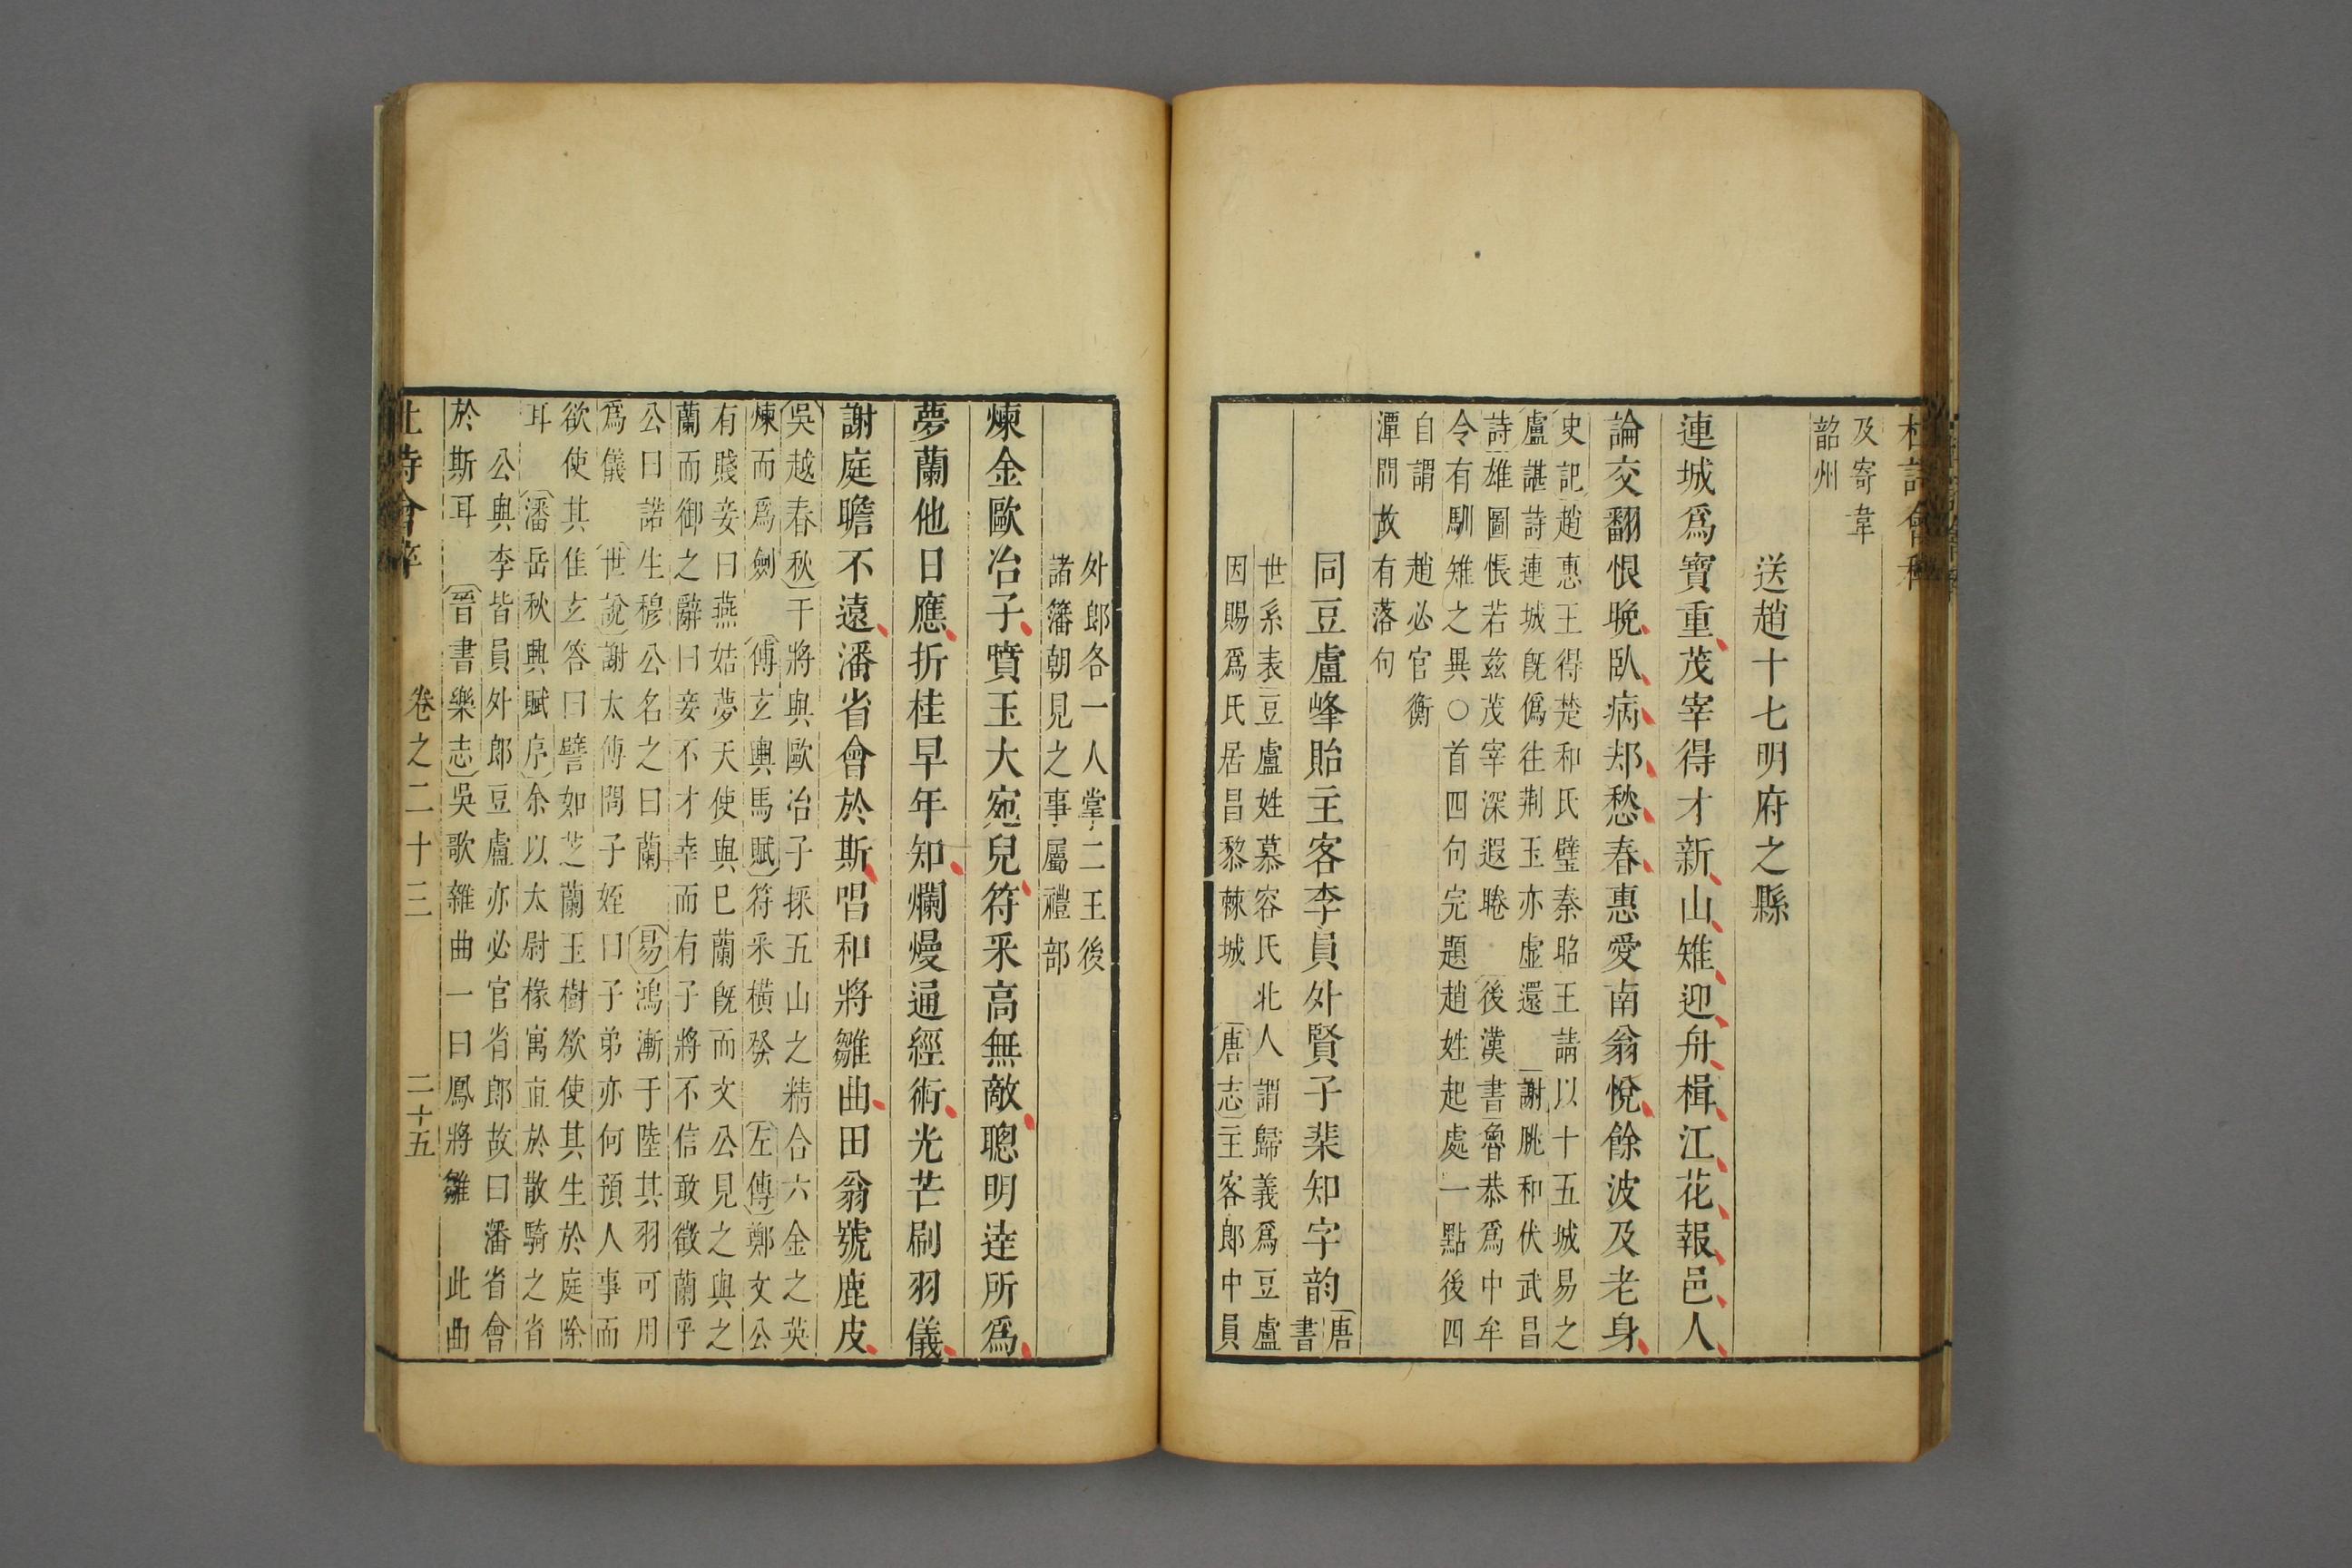 杜詩會稡
及寄韋
韶州
送趙十七明府之縣
連城爲寶重茂宰得才新山雉迎舟楫江花報邑人
論交翻恨晚臥病却愁春惠愛南翁悅餘波及老身
史記趙惠王得楚和氏璧秦昭王請以十五城易之
盧諶詩連城旣僞往荆玉亦虛還 謝朓和伏武昌
詩雄圖悵若兹茂宰深遐睠 後漢書魯恭爲中牟
令有馴雉之異○首四句完題趙姓起處一點後四
自謂 趙必官衡
潭間故有落句
同豆盧峰貽主客李員外賢子棐知字韵 唐
書
世系表豆盧姓慕容氏北人謂歸義爲豆盧
因賜爲氏居昌黎棘城 唐志主客郎中員
外郎各一人掌二王後
諸籓朝見之事屬禮部
煉金歐冶子噴玉大宛兒符釆高無敵聰明逹所爲
夢蘭他日應折桂早年知爛熳通經術光芒刷羽儀
謝庭瞻不遠潘省會於斯唱和將雛曲田翁號鹿皮
吳越春秋干將與歐冶子採五山之精合六金之英
煉而爲劍 傅玄輿馬賦符釆橫發 左傳鄭文公
有賤妾曰燕姞夢天使與己蘭旣而文公見之與之
蘭而御之辭曰妾不才幸而有子將不信敢徵蘭乎
公曰諾生穆公名之曰蘭 易鴻漸于陸其羽可用
爲儀 世說謝太傅問子姪曰子弟亦何預人事而
欲使其佳玄答曰譬如芝蘭玉樹欲使其生於庭除
耳 潘岳秋興賦序余以太尉椽寓直於散騎之省
公與李皆員外郎豆盧亦必官省郎故曰潘省會
於斯耳 晉書樂志吳歌雜曲一曰鳳將雛 此曲
杜詩會稡 卷之二十三 二十五